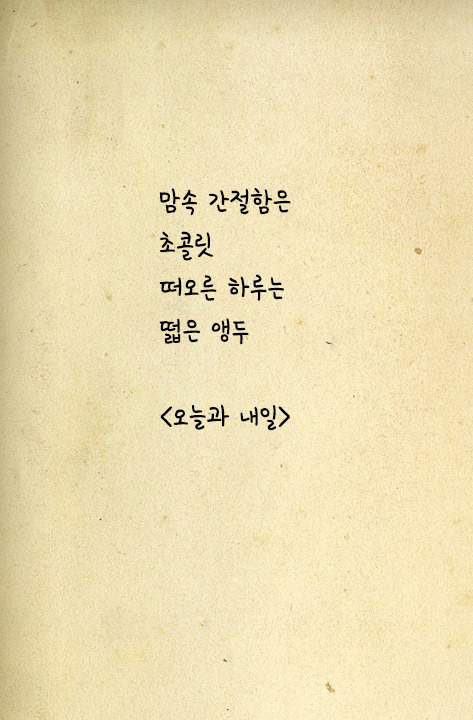 맘속 간절함은
초콜릿
떠오른 하루는
떫은 앵두
<오늘과 내일>